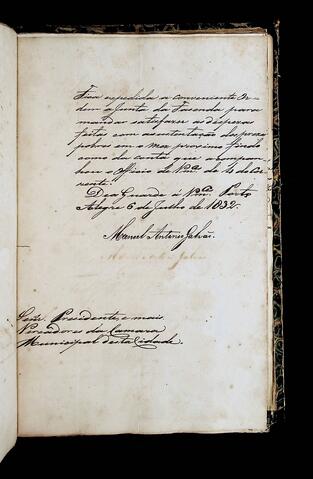 Fica expedida a conveniente Or-
dem a Junta da Fazenda para
mandar satisfazer as despezas
feitas com a sustentação dos prezos
pobres em o mez proximo findo
como da conta que acompa-
nhou o Officio de Vmces de 4 do Cor-
rente.
Deos Guarde a Vmces Porto
Alegre 6 de Julho de 1832.
Manoel Antonio Galvão.
Snres Presidente, e mais
Vereadores da Camara
Municipal desta Cidade.